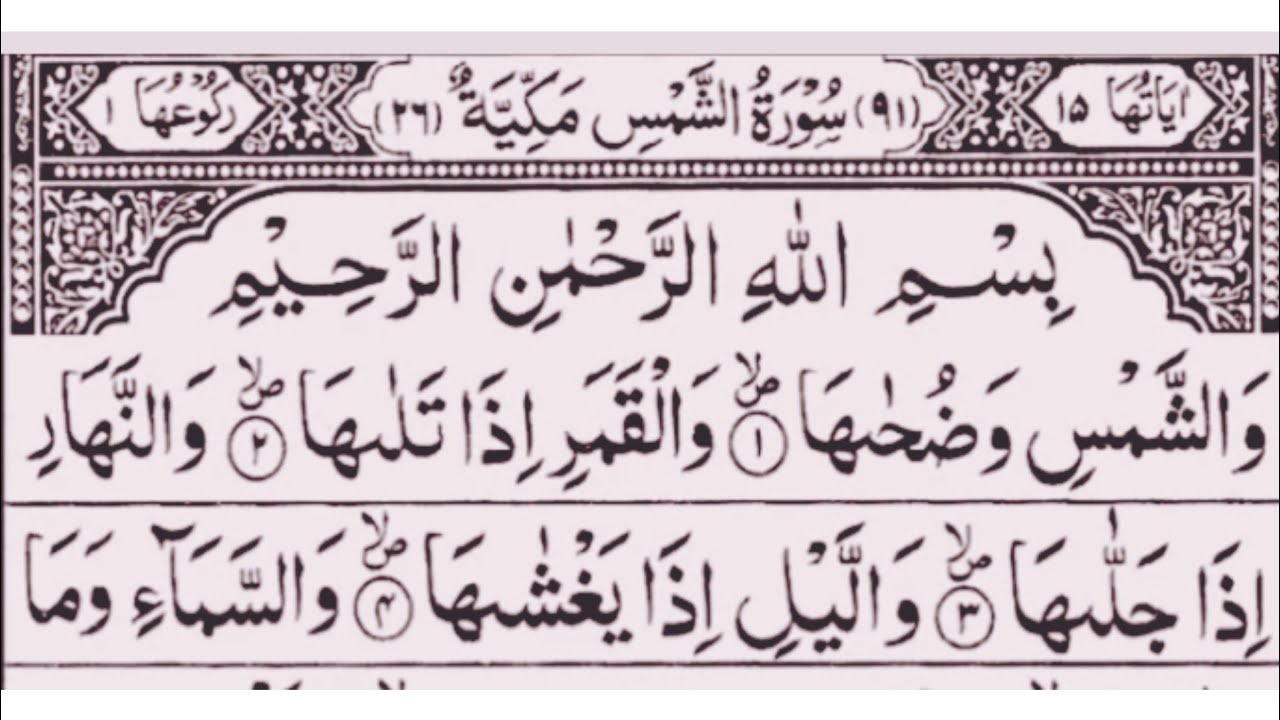 اٰيَاتُهَا ١٥ (٩١) سُوْرَةُ الشَّمْسِ مَكِّيَّةٌ (٢٦) رُكُوْعُهَا ١
بِسْمِ اللّٰهِ الرَّحْمٰنِ الرَّحِيْمِ
وَالشَّمْسِ وَضُحٰىهَا ۪ۙ ١ وَالْقَمَرِ اِذَا تَلٰىهَا ۪ۙ ٢ وَالنَّهَارِ
اِذَا جَلّٰىهَا ۪ۙ ٣ وَالَّيْلِ اِذَا يَغْشٰىهَا ۪ۙ ۴ وَالسَّمَآءِ وَمَا